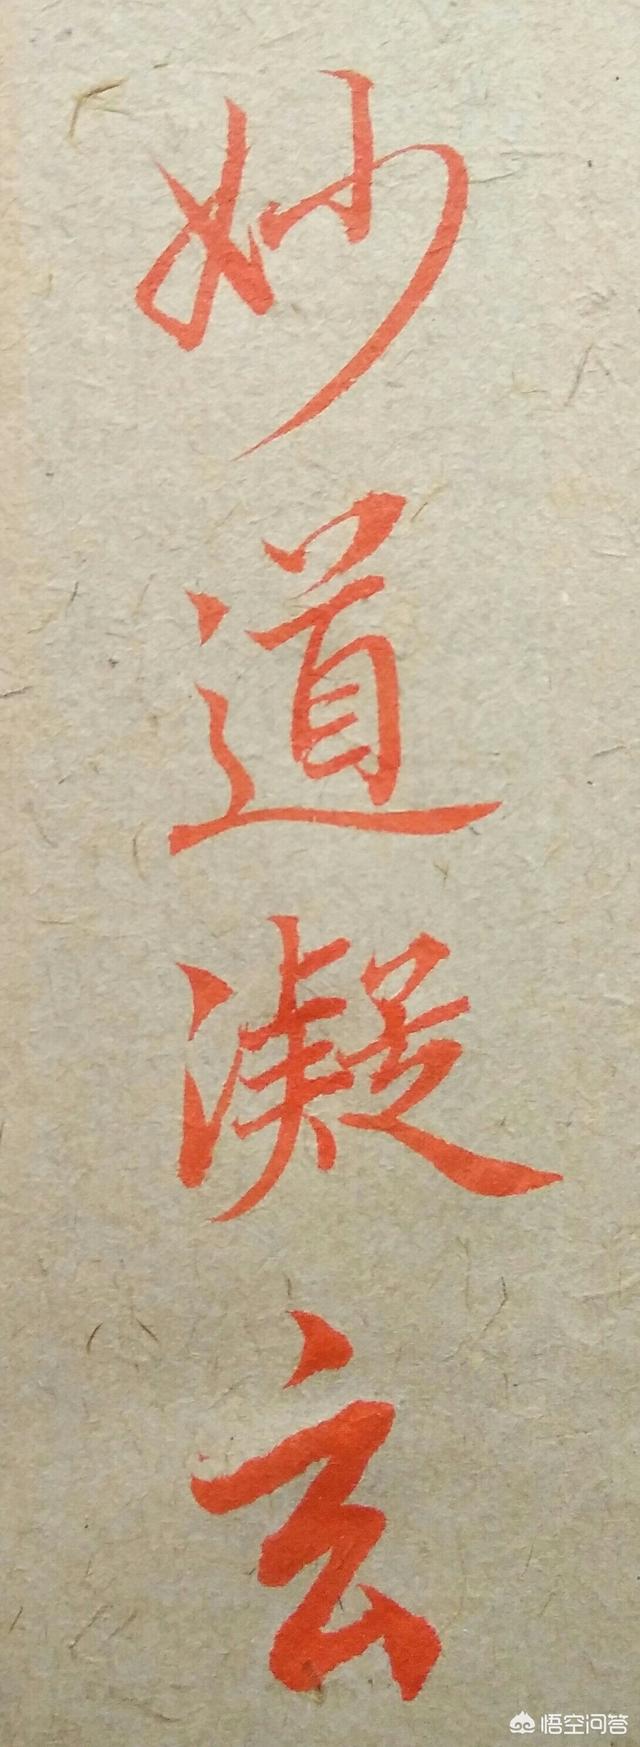 妙道凝玄
悟空问答